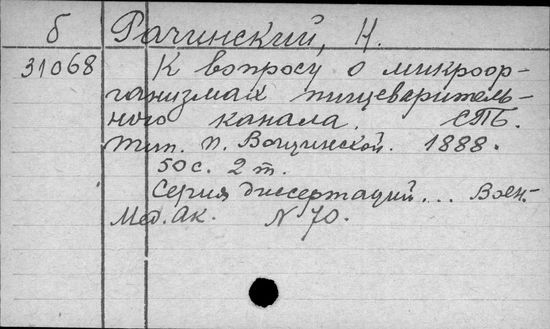 б Рачинский, Н.
31068 К вопросу о микроор-
ганизмах пищеваритель-
ного канала. СПБ.
тип. П. Вощинской. 1888.
50 с. 2 т.
Серия диссертаций... Воен.-
Мед. Ак. N 70.